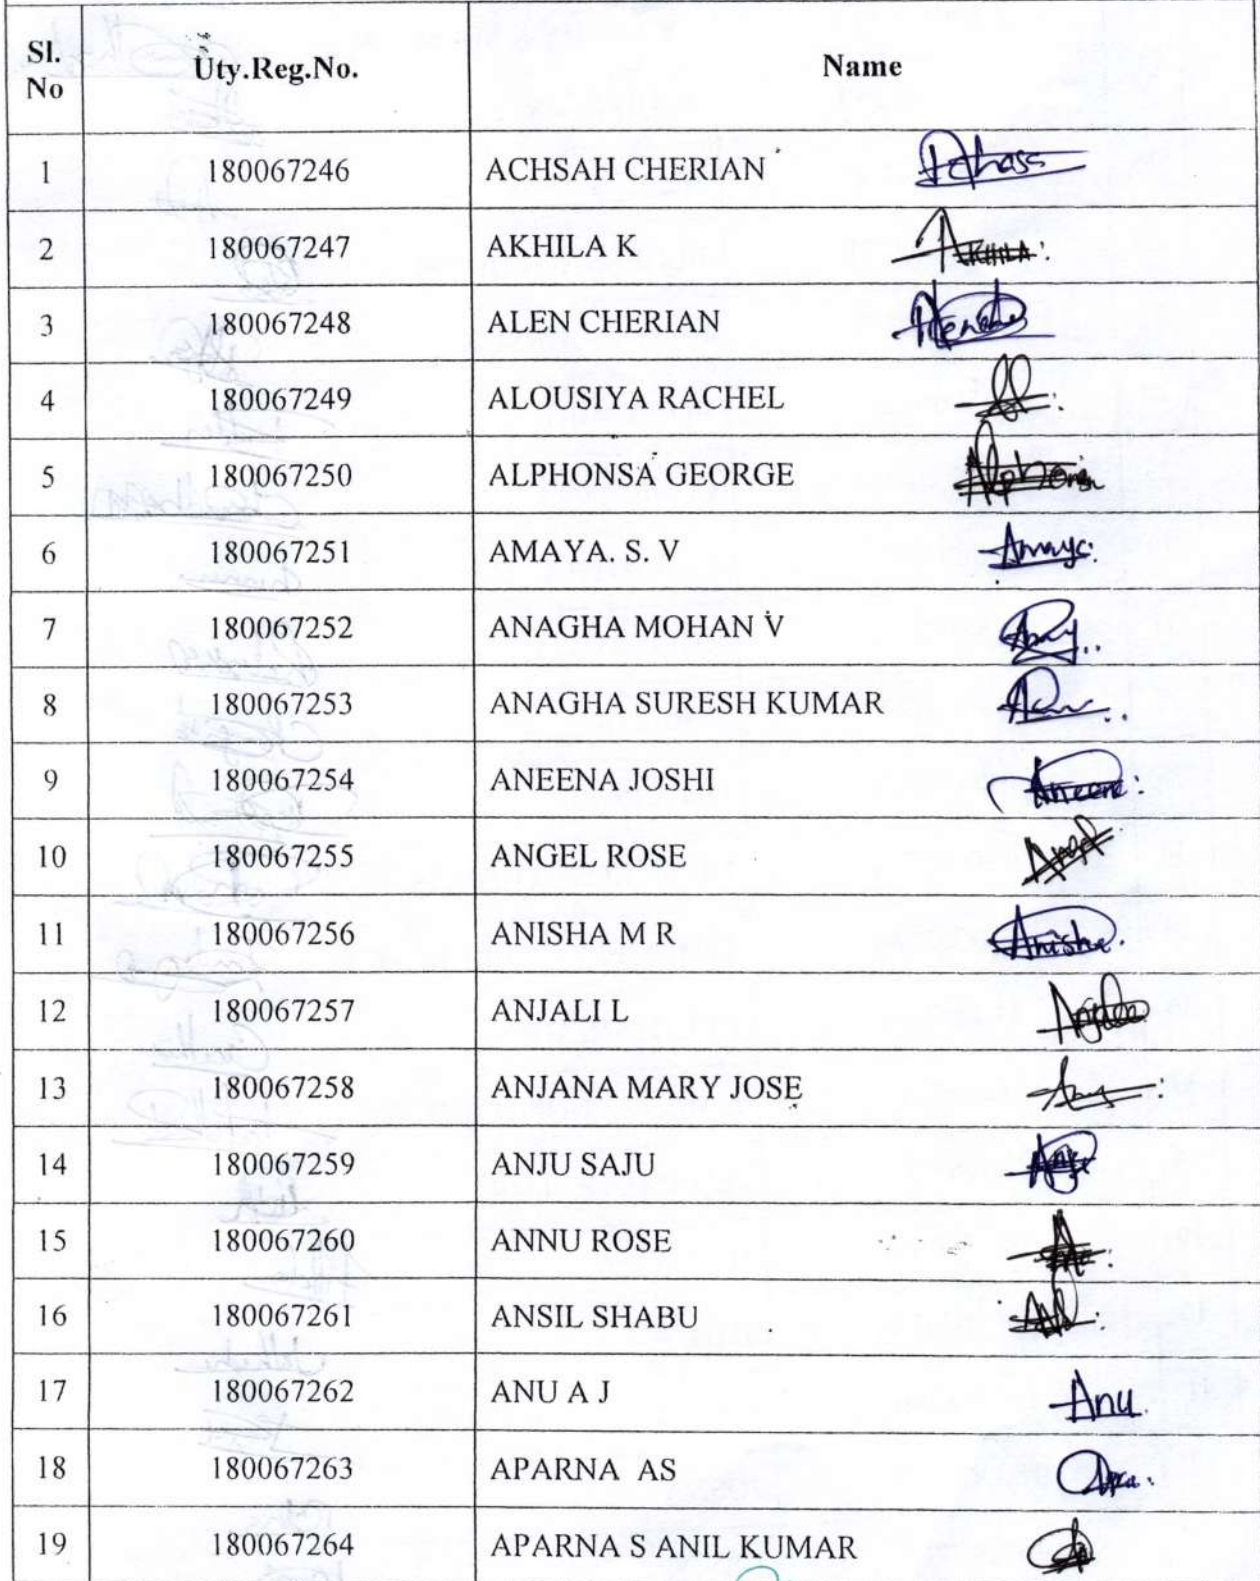 Sl. No Uty.Reg.No. Name
1 180067246 ACHSAH CHERIAN
2 180067247 AKHILA K AKHILA
3 180067248 ALEN CHERIAN
4 180067249 ALOUSIYA RACHEL
5 180067250 ALPHONSA GEORGE Alphonsa
6 180067251 AMAYA. S. V Amaya
7 180067252 ANAGHA MOHAN V
8 180067253 ANAGHA SURESH KUMAR
9 180067254 ANEENA JOSHI Aneena
10 180067255 ANGEL ROSE Angel
11 180067256 ANISHA M R Anisha
12 180067257 ANJALI L
13 180067258 ANJANA MARY JOSE
14 180067259 ANJU SAJU Anju
15 180067260 ANNU ROSE
16 180067261 ANSIL SHABU
17 180067262 ANU A J Anu
18 180067263 APARNA AS
19 180067264 APARNA S ANIL KUMAR